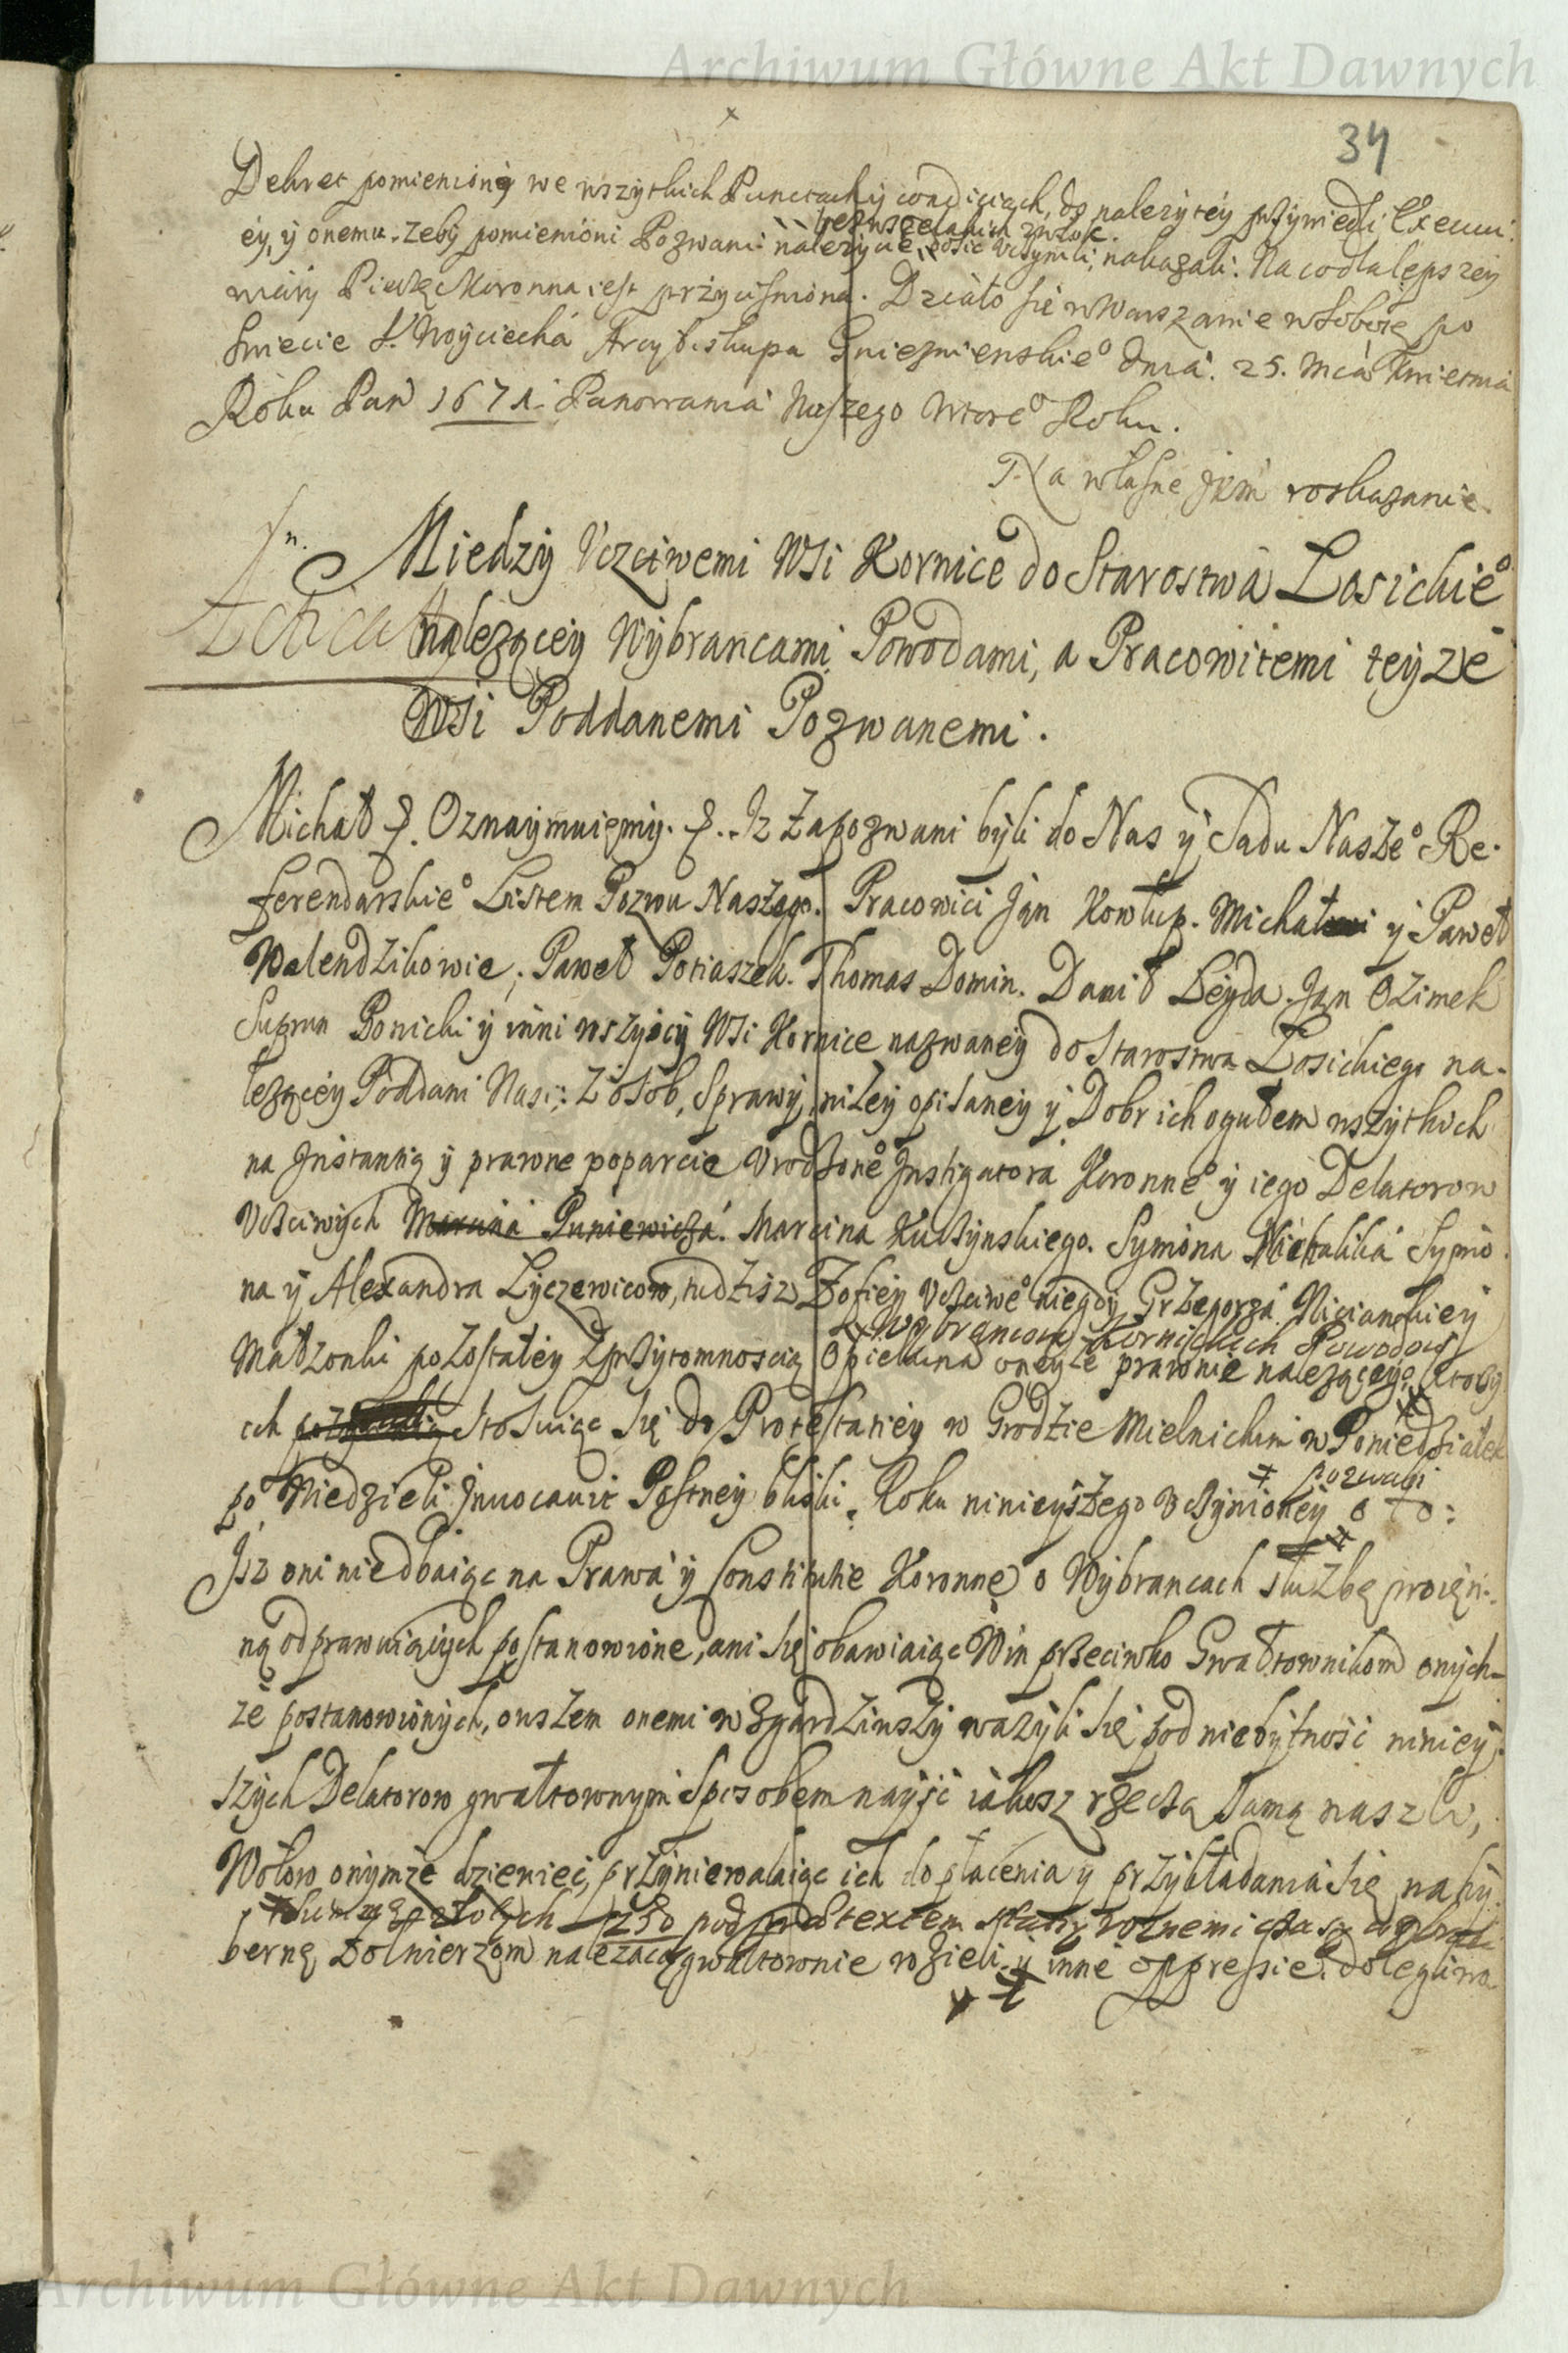 Archiwum Główne Akt Dawnych
34
Dekret pomieniony we wszytkich Punctach y conditiach, do należytey przywiedli Executi:
bez wszelakich zwłok.
ey, y onemu. żeby pomienioni Pozwani należycie dosić uczynili, nakazali. Na co dla lepszey
wiary Pieczęć Koronna iest przyciśniona. Działo się w Warszawie w Sobotę po
Święcie S. Woyciecha Arcybiskupa Gnieznienskie° dnia. 25. Mca Kwietnia
Roku Pań 1671. Panowania Naszego wtore° Roku.
Na własne JKM roskazanie.
Miedzy Uczciwemi Wsi Kornice do Starostwa Łosickie°
należącey Wybrancami Powodami, a Pracowitemi teyze
Wsi Poddanemi Pozwanemi.
Michał &. Oznaymuiemy. &. Iz Zapozwani byli do Nas y Sadu Nasze° Re-
ferendarskie° Listem Pozwu Naszego. Pracowici Jan Kowłup. Michał y Paweł
Walendzikowie, Paweł Potiaszek. Thomas Domin. Danił Beyda. Jan Ozimek
Supron Bonicki y inni wszyscy Wsi Kornice nazwaney do Starostwa Łosickiego na-
leżącey Poddani Nasi; Z osob, sprawy niżey opisaney y Dobr ich ogułem wszytkich
na Instantią y prawne poparcie Urodzone° Instigatora Koronne° y iego Delatorow
Ucciwych Marcina Puniewicza. Marcina Kuczynskiego. Symona Michalika Symo
na y Alexandra Łyczewicow, tudzisz Zofiey Ucciwe° niegdy Grzegorza Niciantkiey
Wybrancow Kornickich Powodow
Małzonki pozostałey z przytomnoscią Opiekuna oneyze prawnie należącego, ktorzy
ich stosuiąc się do Protestatiey w Grodzie Mielnickim w Poniedziałek
pozwani
po Niedzieli Invocavit Postney bliski. Roku ninieyszego uczynioney o to:
Jsz oni niedbaiąc na Prawa y Constitutie Koronne o Wybrancach służbę woięn-
ną odprawuiących postanowione, ani się obawiaiąc Win przeciwko Gwałtownikom onych-
że postanowionych, owszem onemi wzgardziwszy ważyli się pod niebytność niniey-
szych Delatorow gwałtownym sposobem nayść iakosz rzeczą samą naszli,
Wołow onymże dziewieć, przyniewalaiąc ich do płacenia y przykładania się na hy
Summę złotych 250 pod praetextem roznemi czasy
berną żołnierzom należącą gwałtownie wzieli y inne oppressie. dolegliwo
Archiwum Główne Akt Dawnych